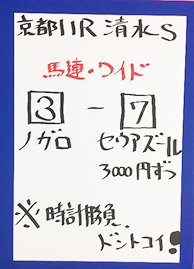 京都11R 清水S
馬連・ワイド
3 - 7
ノガロ セウアズール
3000円ずつ
※時計勝負
ドントコイ!